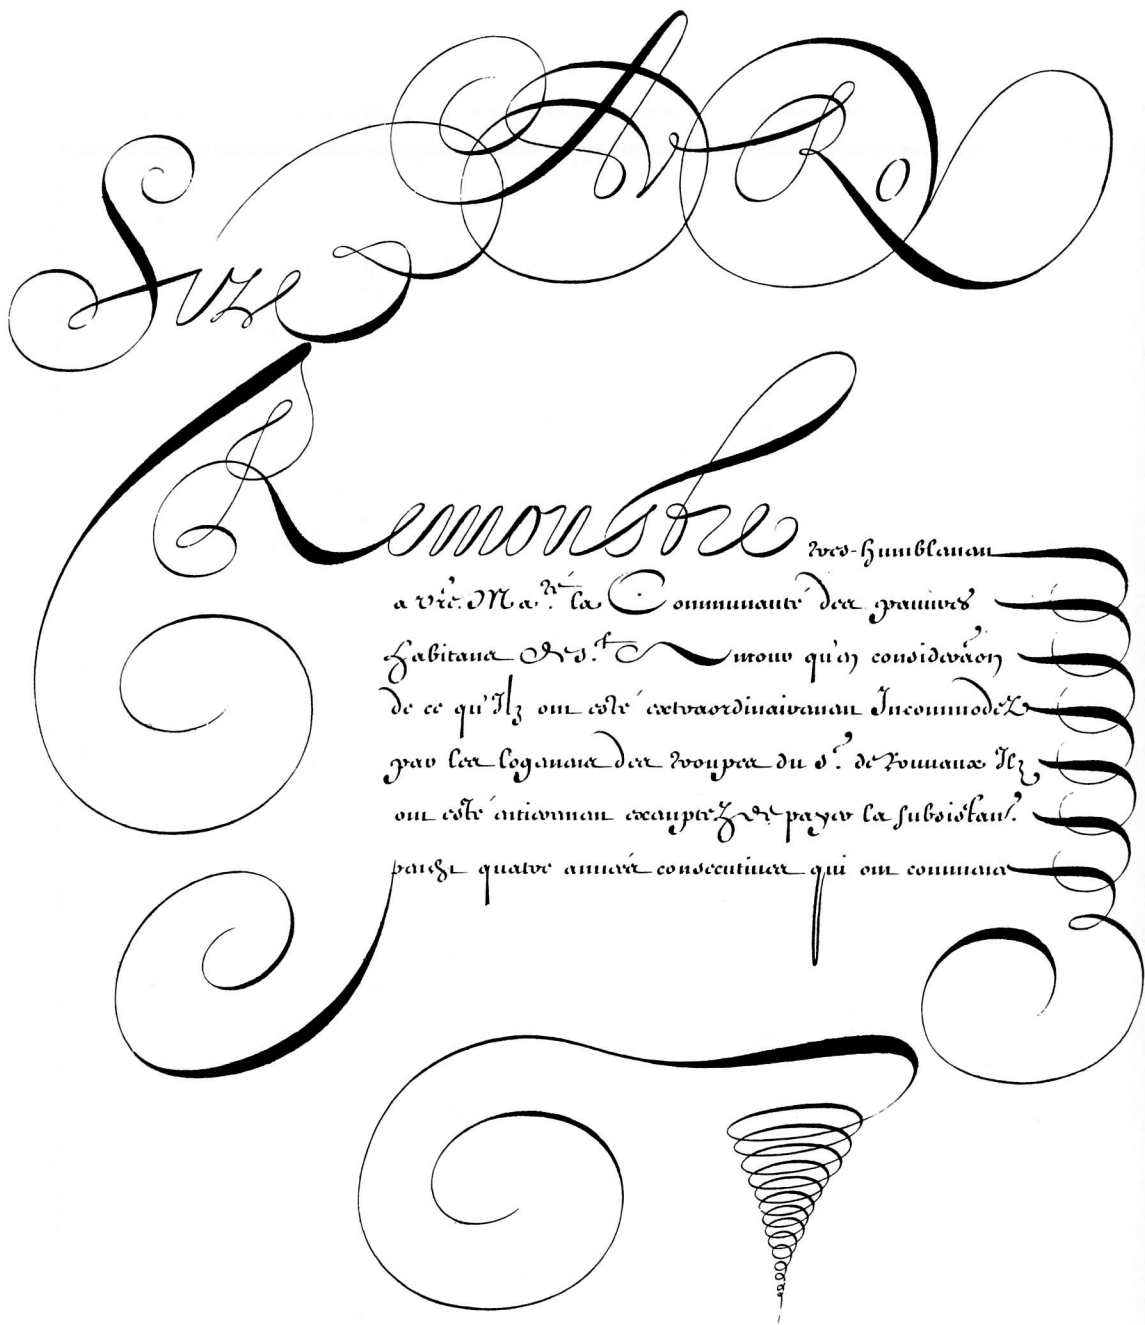 Au Ro
Size
Remonstre tres-humblemen
a vr̃e. Ma.té la Communauté des pauures
habitans de s.t Antour qu'en consideraõn
de ce qu'Ilz ont esté extraordinairemen Incommodez
par les logemens des trouppes du s.r de Ilz
ont esté entieremen exemptez de payer la subsistan.
pendt quatre années consecutiues qui ont commencé